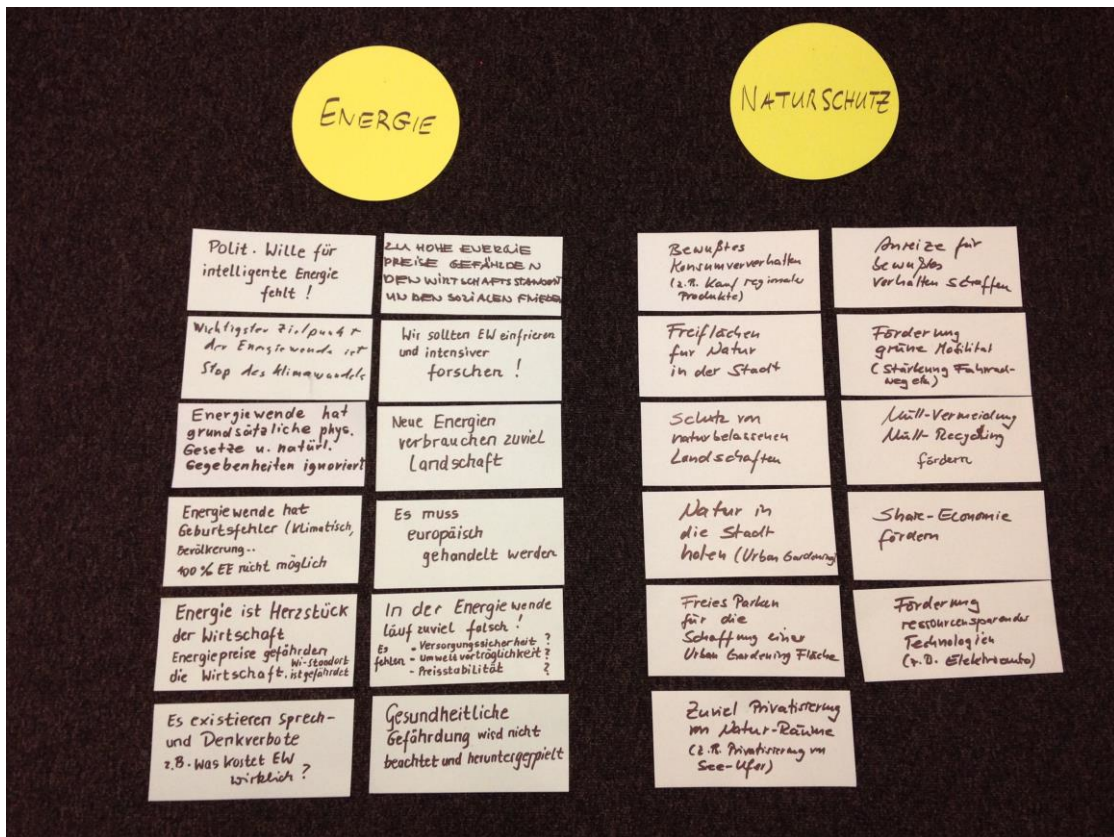 ENERGIE
Polit. Wille für
intelligente Energie
fehlt !
Wichtigster Zielpunkt
der Energiewende ist
Stop des Klimawandels
Energiewende hat
grundsätzliche phys.
Gesetze u. natürl.
Gegebenheiten ignoriert
Energiewende hat
Geburtsfehler (Klimatisch,
Bevölkerung..
100 % EE nicht möglich
Energie ist Herzstück
der Wirtschaft
Energiepreise gefährden
die Wirtschaft. Wi-Standort
ist gefährdet
Es existieren Sprech-
und Denkverbote
z.B. Was kostet EW
wirklich ?
ZU HOHE ENERGIE
PREISE GEFÄHLDEN
DEN WIRTSCHAFTSSTANDORT
UN DEN SOZIALEN FRIEDEN
Wir sollten EW einfrieren
und intensiver
forschen !
Neue Energien
verbrauchen zuviel
Landschaft
Es muss
europäisch
gehandelt werden
In der Energiewende
läuf zuviel falsch !
Es fehlen - Versorgungssicherheit ?
- Umweltverträglichkeit ?
- Preisstabilität ?
Gesundheitliche
Gefährdung wird nicht
beachtet und heruntergespielt
NATURSCHUTZ
Bewußtes
Konsumververhalten
(z.B. Kauf regionaler
Produkte)
Freiflächen
für Natur
in der Stadt
Schutz von
naturbelassenen
Landschaften
Natur in
die Stadt
holen (Urban Gardening)
Freies Parken
für die
Schaffung einer
Urban Gardening Fläche
Zuviel Privatisierung
von Natur-Räume
(z.B. Privatisierung von
See-Ufer)
Anreize für
bewußtes
Verhalten schaffen
Förderung
grüne Mobilität
(Stärkung Fahrrad-
weg etc.)
Müll-Vermeidung
Müll-Recycling
fördern
Share-Economie
fördern
Förderung
ressourcensparender
Technologien
(z.B. Elektroauto)